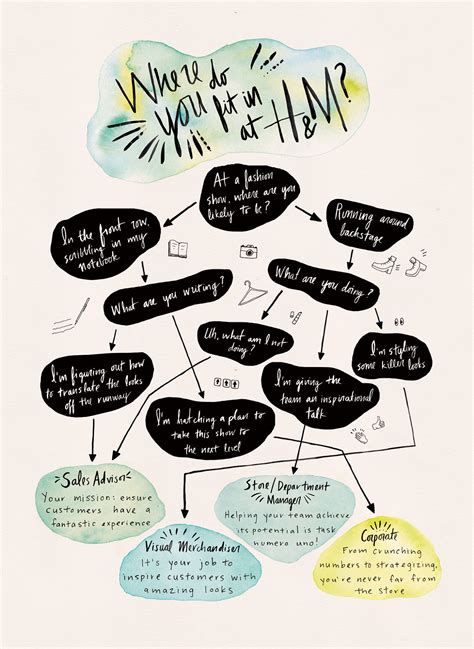 Where do
you fit in
at H&M?
At a fashion
show, where are you
likely to be?
In the front row,
scribbling in my
notebook
Running around
backstage
What are you writing?
What are you doing?
Uh, what am I not
doing?
I'm figuring out how
to translate the looks
off the runway
I'm styling
some killer looks
I'm giving the
team an inspirational
talk
I'm hatching a plan to
take this show to
the next level
Sales Advisor
Your mission: ensure
customers have a
fantastic experience
Store/Department
Manager
Helping your team achieve
its potential is task
numero uno!
Visual Merchandiser
It's your job to
inspire customers with
amazing looks
Corporate
From crunching
numbers to strategizing,
you're never far from
the store